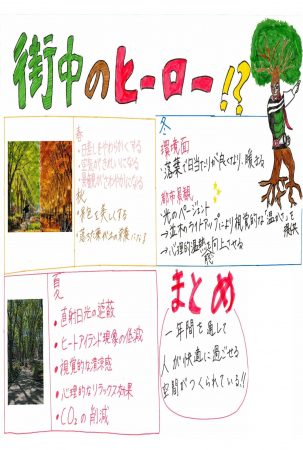 街中のヒーロー!?
春
・日差しをやわらかくする
・空気がきれいになる
・景観がさわやかになる
秋
・景色を美しくする
・落ちた葉が土の栄養になる
冬
環境面
・落葉で日当たりが良くなり、暖まる
都市景観
・光のページェント
→並木のライトアップにより視覚的な"温かさ"を提供
→心理的温熱感を向上させる
夏
・直射日光の遮蔽
・ヒートアイランド現象の低減
・視覚的な清涼感
・心理的なリラックス効果
・CO2の削減
まとめ
一年間を通して
人が快適に過ごせる
空間がつくられている!!